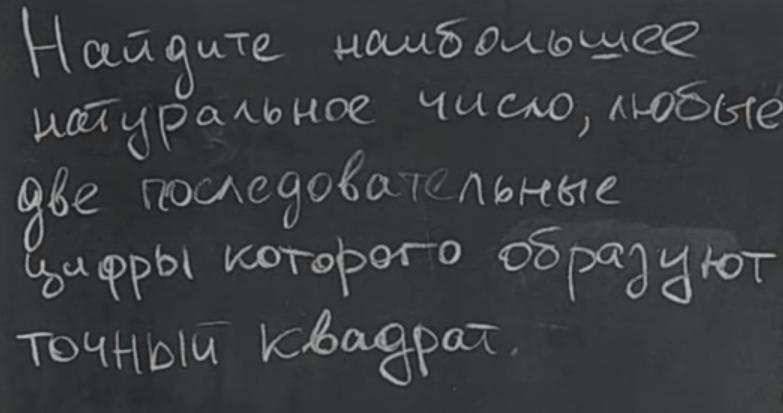 Найдите наибольшее
натуральное число, любые
две последовательные
цифры которого образуют
точный квадрат.